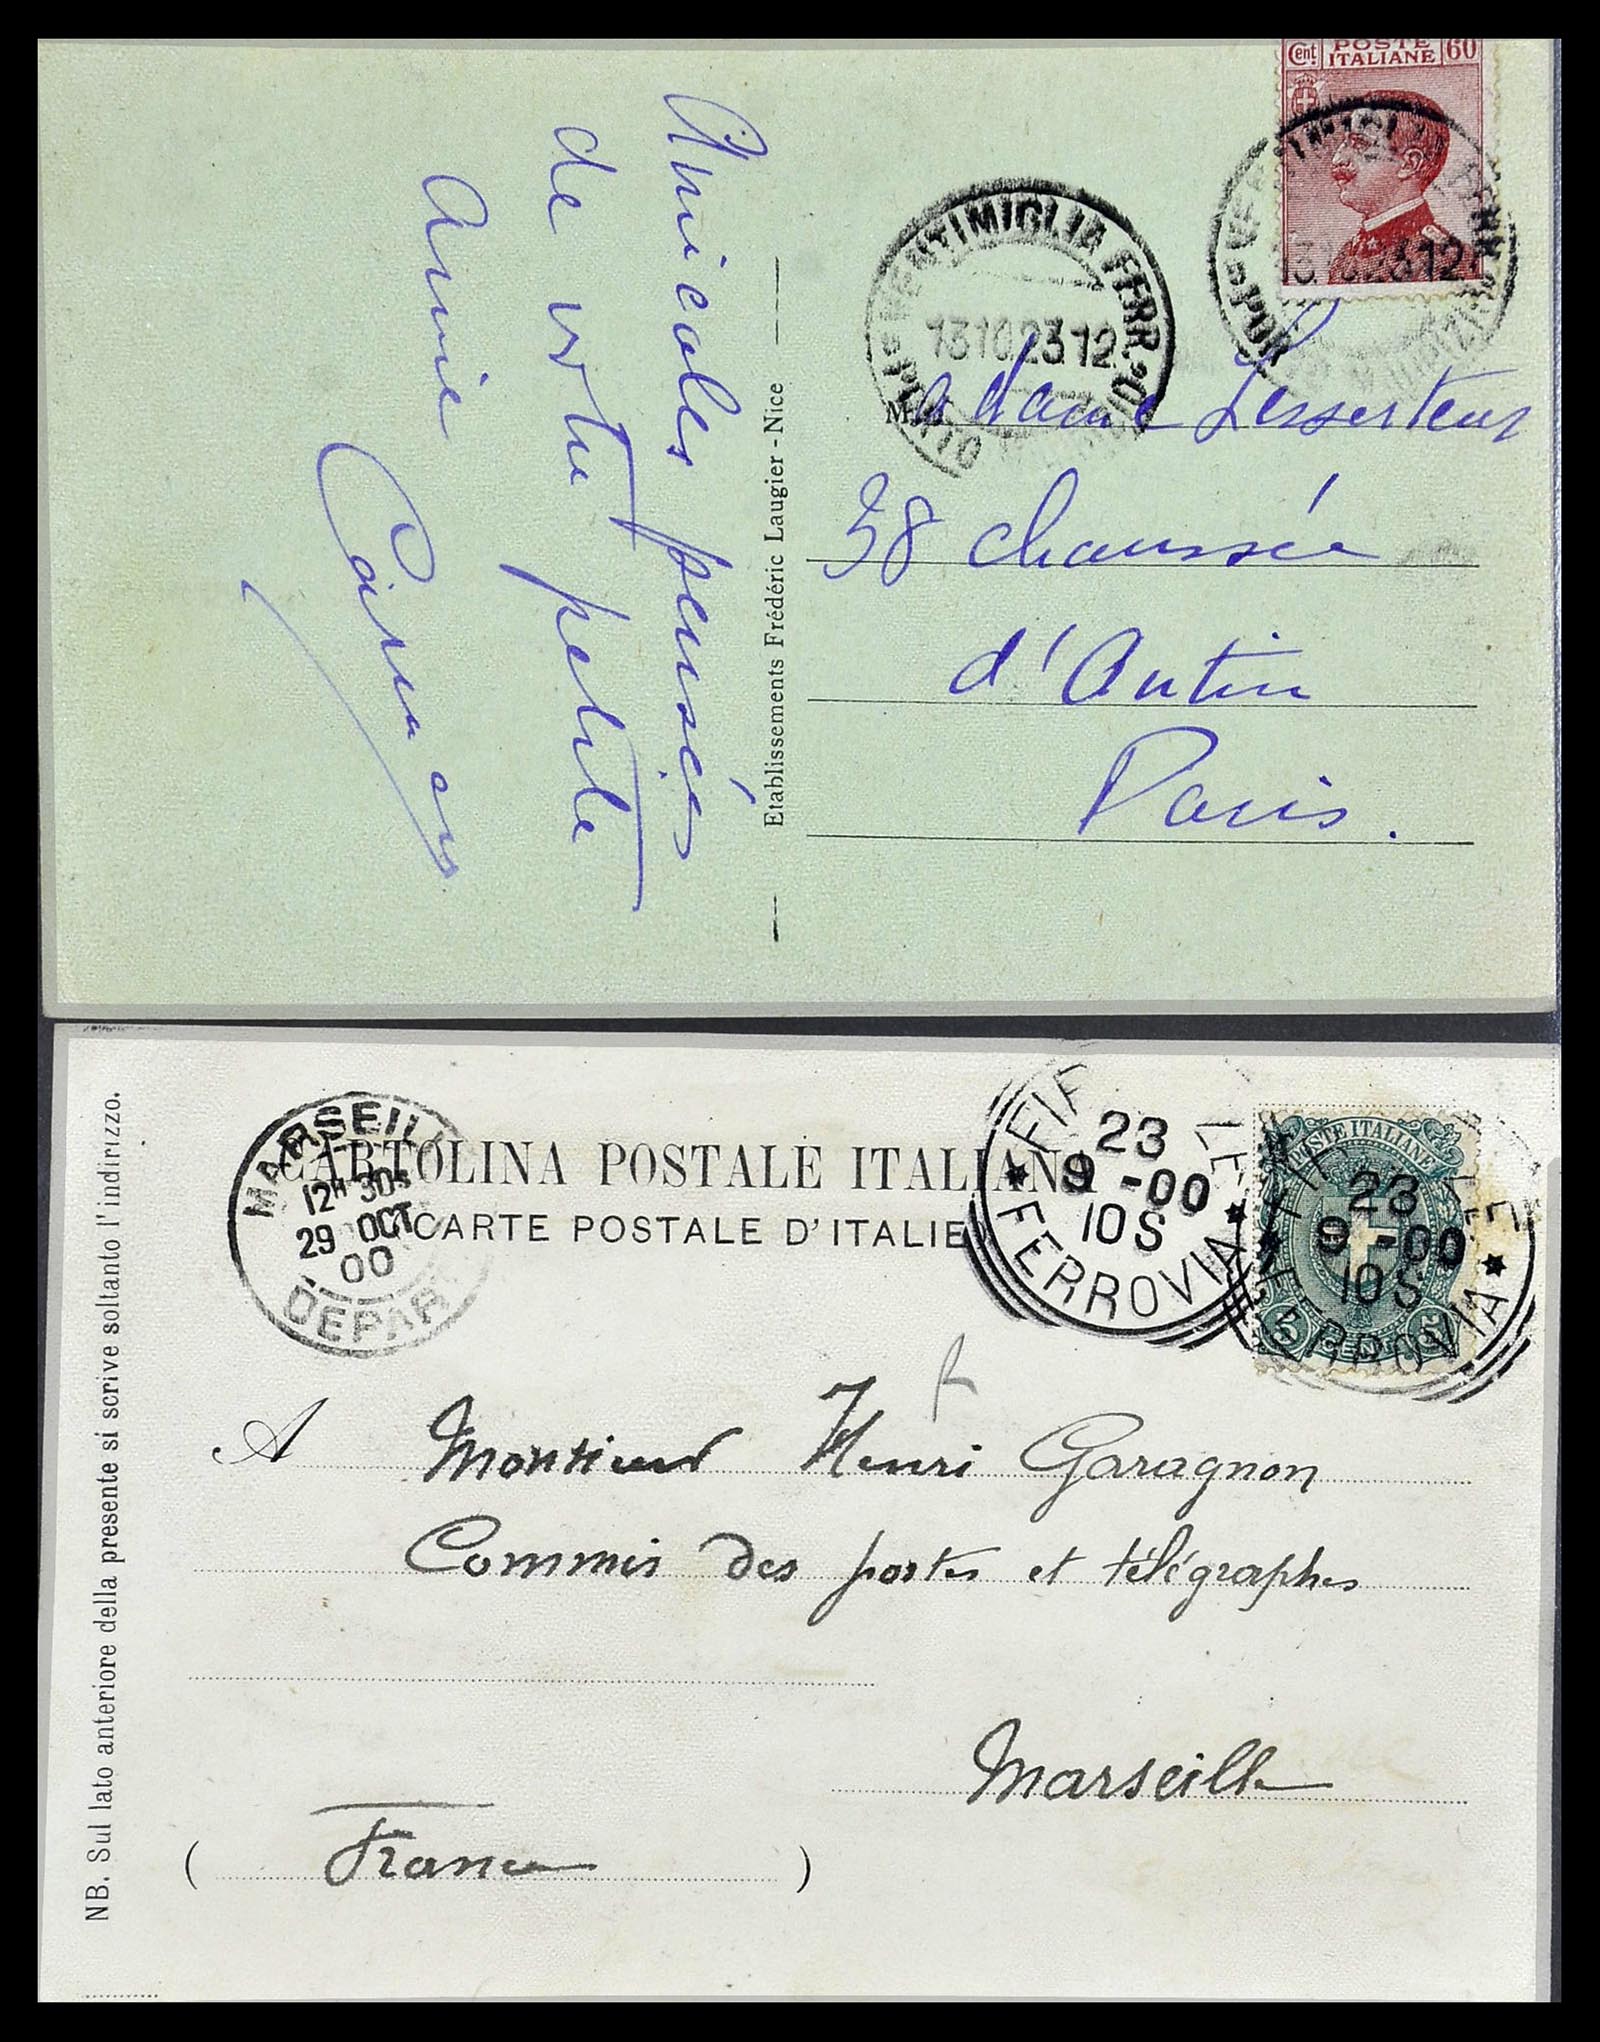 Cent POSTE 60
ITALIANE
VENTIMIGLIA FERR.
13 10 23 12
Amicales pensées
de votre petite
amie
Etablissements Frédéric Laugier - Nice
Madame Lesserteur
38 chaussée
d'Antin
Paris.
MARSEILL
12H 30S
29 OCT
00
DEPAR
CARTOLINA POSTALE ITALIANA
CARTE POSTALE D'ITALIE
FIR LE
23
9 -00
10S
FERROVIA
POSTE ITALIANE
23
9 -00
10S
FERROVIA
5 CENT 5
NB. Sul lato anteriore della presente si scrive soltanto l'indirizzo.
A Monsieur Henri Garagnon
Commis des postes et télégraphes
Marseille
( France )